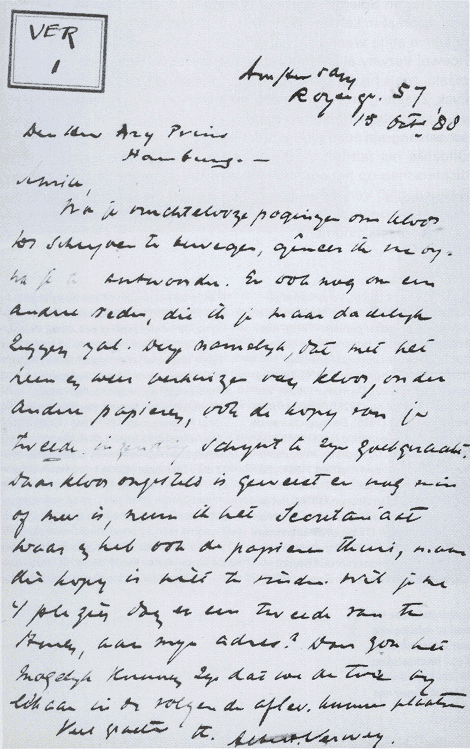 VER
1
Amsterdam
Rozengr. 57,
15 Oct. 88
Den Heer Ary Prins
Hamburg. —
Amice,
Na je vruchtelooze pogingen om Kloos
tot schrijven te bewegen, gêneer ik me
je te antwoorden. En ook nog om een
andere reden, die ik je maar dadelijk
zeggen zal. Deze namelijk, dat met het
heen en weer verhuizen van Kloos, onder
andere papieren, ook de kopy van je
tweede inzending schijnt te zijn zoekgeraakt.
Daar Kloos ongesteld is geweest en nog min
of meer is, neem ik het Secretariaat
waar en heb ook de papieren thuis, maar
die kopy is niet te vinden. Wil je me
't plezier doen er een tweede van te
sturen, aan mijn adres? Dan zou het
mogelijk kunnen zijn dat we de twee
elkaar in de volgende aflev. kunnen plaatsen
Veel groeten t. t. Albert Verwey.